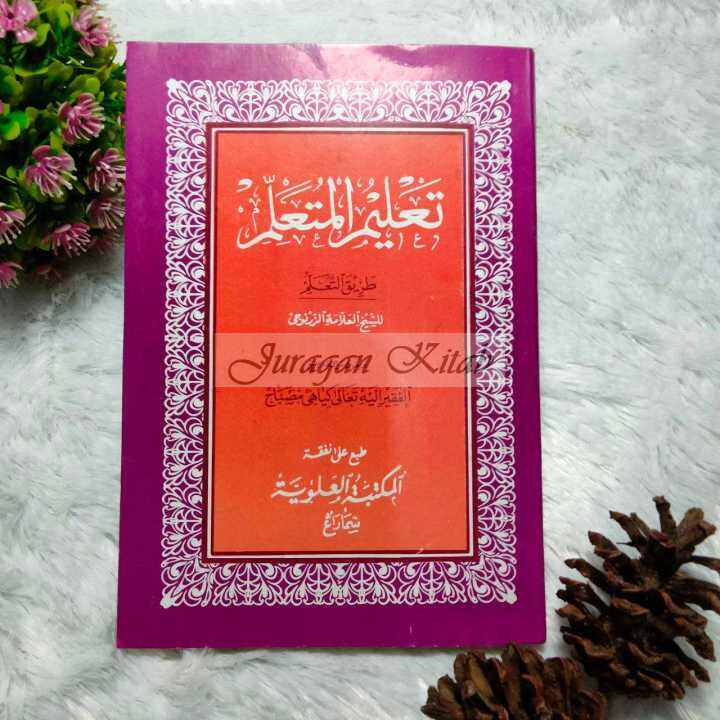 تَعْلِيمُ الْمُتَعَلِّمِ
طَرِيقَ التَّعَلُّمِ
للشيخ العلامة الزرنوجى
Juragan Kitab
الفقير اليه تعالى كياهى مصباح
طبع على نفقة
المكتبة العلوية
سمارانغ